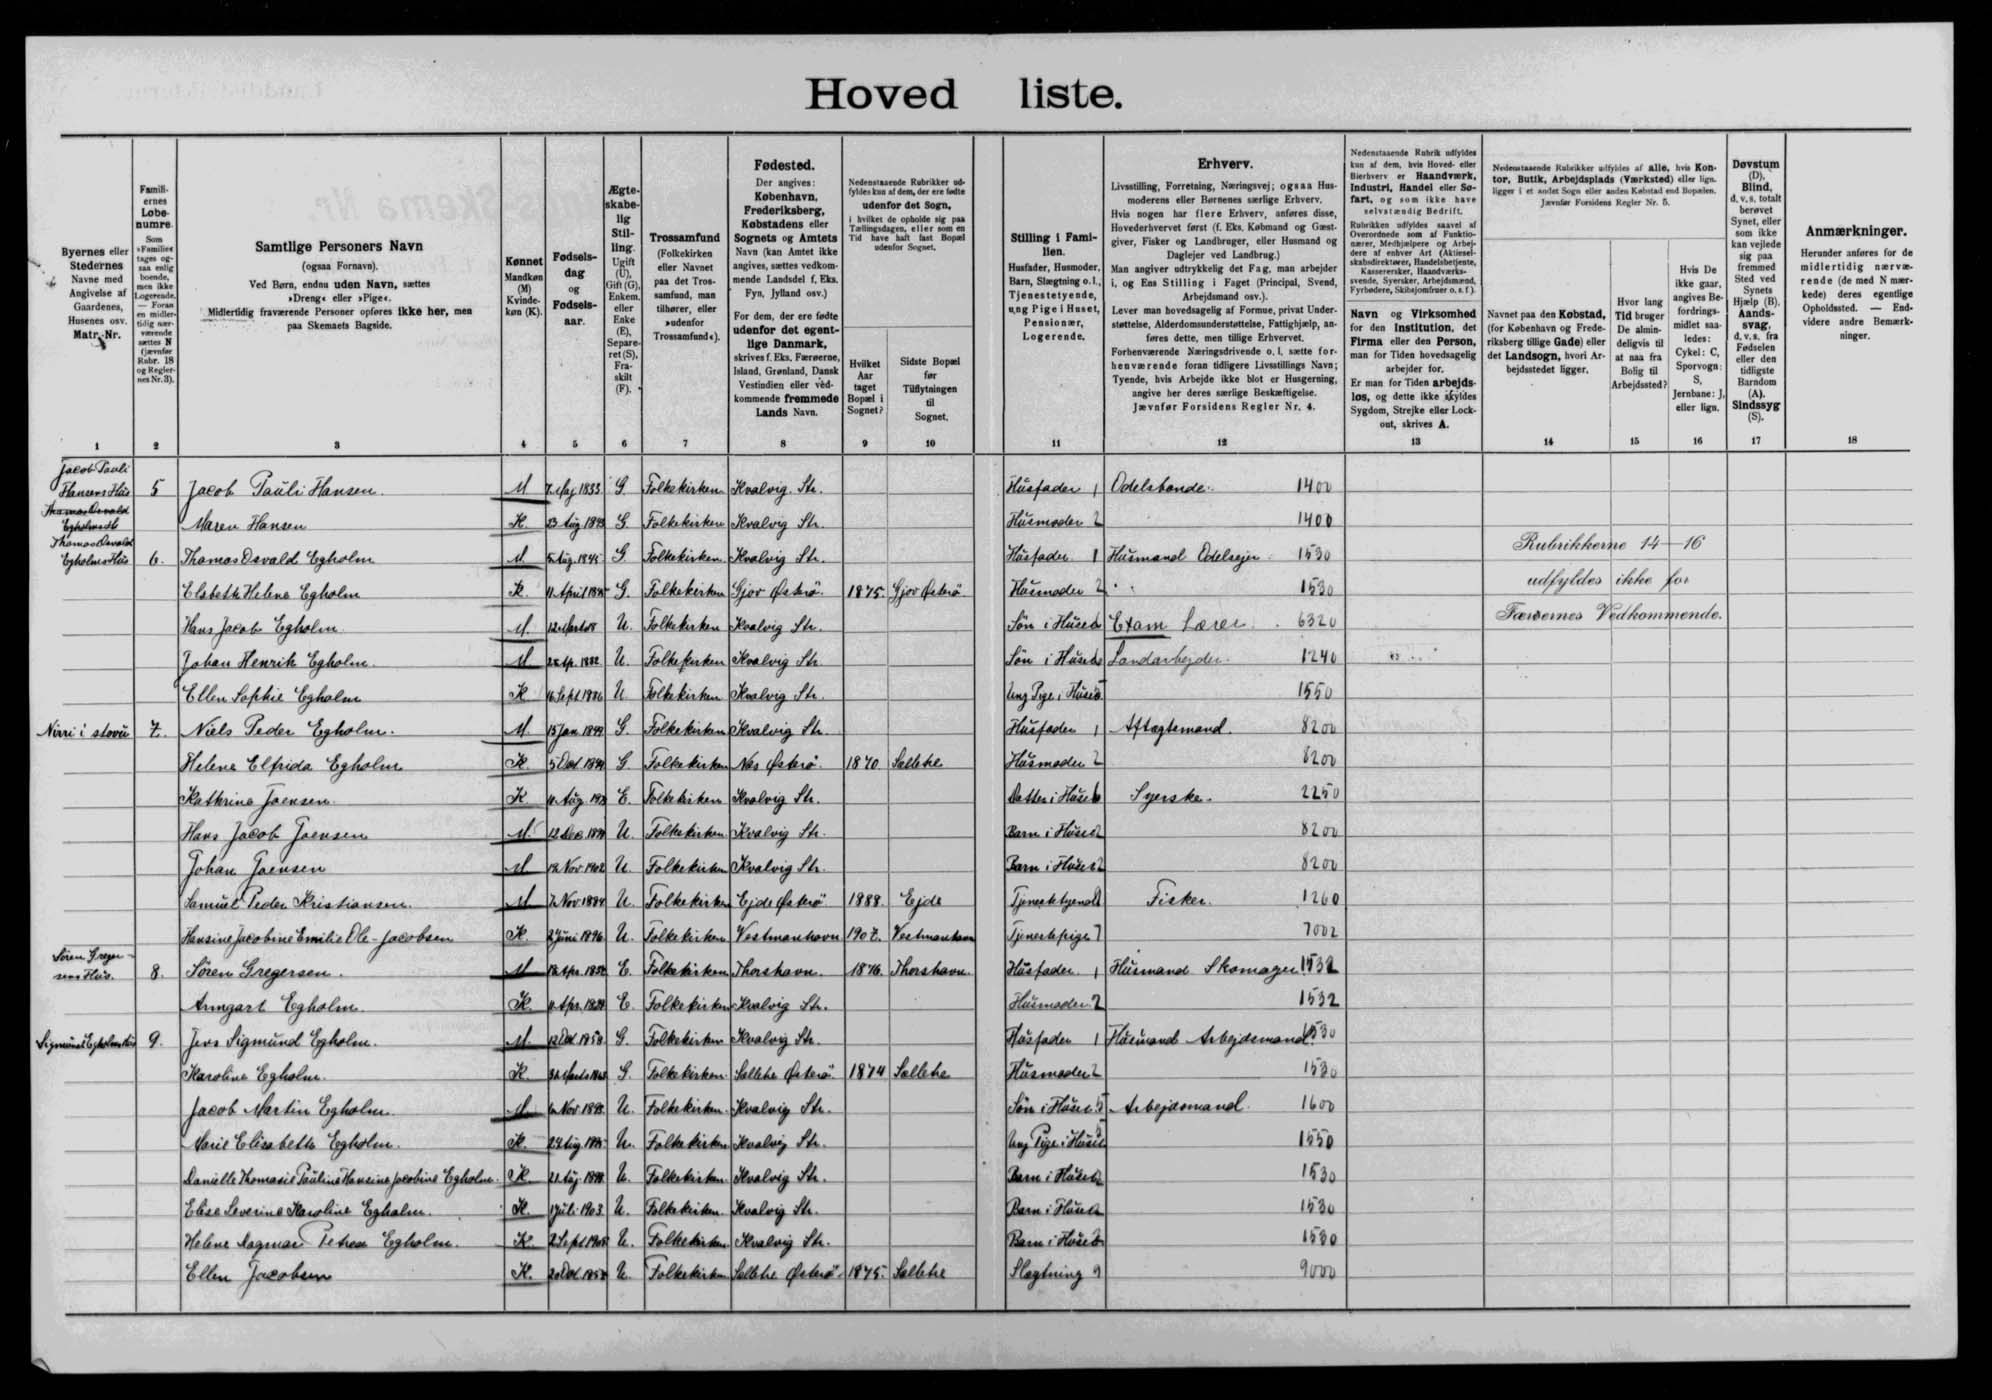 Hoved liste.
Byernes eller Stedernes Navne med Angivelse af Gaardenes, Husenes osv. Matr. Nr.
Familiernes Løbenumre. Som »Familie« tages ogsaa enlig boende, men ikke Logerende. — Foran en midlertidig nærværende sættes N (jævnfør Rubr. 18 og Reglernes Nr. 3).
Samtlige Personers Navn (ogsaa Fornavn). Ved Børn, endnu uden Navn, sættes »Dreng« eller »Pige«. Midlertidig fraværende Personer opføres ikke her, men paa Skemaets Bagside.
Kønnet Mandkøn (M) Kvindekøn (K).
Fødselsdag og Fødselsaar.
Ægteskabelig Stilling. Ugift (U), Gift (G), Enkem. eller Enke (E), Separeret (S), Fraskilt (F).
Trossamfund (Folkekirken eller Navnet paa det Trossamfund, man tilhører, eller »udenfor Trossamfund«).
Fødested. Der angives: København, Frederiksberg, Købstadens eller Sognets og Amtets Navn (kan Amtet ikke angives, sættes vedkommende Landsdel f. Eks. Fyn, Jylland osv.) For dem, der ere fødte udenfor det egentlige Danmark, skrives f. Eks. Færøerne, Island, Grønland, Dansk Vestindien eller vedkommende fremmede Lands Navn.
Nedenstaaende Rubrikker udfyldes kun af dem, der ere fødte udenfor det Sogn, i hvilket de opholde sig paa Tællingsdagen, eller som en Tid have haft fast Bopæl udenfor Sognet.
Hvilket Aar taget Bopæl i Sognet?
Sidste Bopæl før Tilflytningen til Sognet.
Stilling i Familien. Husfader, Husmoder, Barn, Slægtning o. l., Tjenestetyende, ung Pige i Huset, Pensionær, Logerende.
Erhverv. Livsstilling, Forretning, Næringsvej; ogsaa Husmoderens eller Børnenes særlige Erhverv. Hvis nogen har flere Erhverv, anføres disse, Hovederhvervet først (f. Eks. Købmand og Gæstgiver, Fisker og Landbruger, eller Husmand og Daglejer ved Landbrug.) Man angiver udtrykkelig det Fag, man arbejder i, og Ens Stilling i Faget (Principal, Svend, Arbejdsmand osv.). Lever man hovedsagelig af Formue, privat Understøttelse, Alderdomsunderstøttelse, Fattighjælp, anføres dette, men tillige Erhvervet. Forhenværende Næringsdrivende o. l. sætte forhenværende foran tidligere Livsstillings Navn; Tyende, hvis Arbejde ikke blot er Husgerning, angive her deres særlige Beskæftigelse. Jævnfør Forsidens Regler Nr. 4.
Nedenstaaende Rubrik udfyldes kun af dem, hvis Hoved- eller Bierhverv er Haandværk, Industri, Handel eller Søfart, og som ikke have selvstændig Bedrift.
Rubrikken udfyldes saavel af Overordnede som af Funktionærer, Medhjælpere og Arbejdere af enhver Art (Aktieselskabsdirektører, Handelsbetjente, Kasserersker, Haandværkssvende, Syersker, Arbejdsmænd, Fyrbødere, Skibsjomfruer o. s. f.).
Navn og Virksomhed for den Institution, det Firma eller den Person, man for Tiden hovedsagelig arbejder for. Er man for Tiden arbejdsløs, og dette ikke skyldes Sygdom, Strejke eller Lockout, skrives A.
Nedenstaaende Rubrikker udfyldes af alle, hvis Kontor, Butik, Arbejdsplads (Værksted) eller lign. ligger i et andet Sogn eller anden Købstad end Bopælen. Jævnfør Forsidens Regler Nr. 5.
Navnet paa den Købstad, (for København og Frederiksberg tillige Gade) eller det Landsogn, hvori Arbejdsstedet ligger.
Hvor lang Tid bruger De almindeligvis til at naa fra Bolig til Arbejdssted?
Hvis De ikke gaar, angives Befordringsmidlet saaledes: Cykel: C, Sporvogn: S, Jernbane: J, eller lign.
Døvstum (D). Blind, d. v. s. totalt berøvet Synet, eller som ikke kan vejlede sig paa fremmed Sted ved Synets Hjælp (B). Aandssvag, d. v. s. fra Fødselen eller den tidligste Barndom (A). Sindssyg (S).
Anmærkninger. Herunder anføres for de midlertidig nærværende (de med N mærkede) deres egentlige Opholdssted. — Endvidere andre Bemærkninger.
1 2 3 4 5 6 7 8 9 10 11 12 13 14 15 16 17 18
Jacob Pauli Hansens Hús 5 Jacob Paúli Hansen. M 7. Maj 1833 G. Folkekirken Kvalvig. Str. Húsfader 1 Odelsbonde. 1400
Thomas Osvald Egholms H Maren Hansen K. 23 Aug 1843 G. Folkekirken Kvalvig Str. Húsmoder 2 1400
Thomas Osvald Egholms Hús 6. Thomas Osvald Egholm M. 5 Aug. 1845 G. Folkekirken Kvalvig Str. Húsfader 1 Húsmand Odelsejer 1530
Rubrikkerne 14—16
Elsbeth Helene Egholm K. 11 April 1845 G. Folkekirken Gjov Østerö. 1875. Gjov Østerö Húsmoder 2 1530
udfyldes ikke for
Hans Jacob Egholm. M. U. Folkekirken Kvalvig Str. Sön i Húset Exam Lærer. 6320
Færøernes Vedkommende.
Johan Henrik Egholm. M 1882 U. Folkekirken Kvalvig Str Sön i Húset Landarbejder. 1240
Ellen Sophie Egholm K 16 Sept 1886 U Folkekirken Kvalvig Str. Ung Pige i Húset 1550
Nirri i stovu 7. Niels Peder Egholm. M. 15 Jan 1844 G. Folkekirken Kvalvig Str. Húsfader 1 Aftægtsmand. 8200
Helene Elfrida Egholm K. G. Folkekirken Nes Østerö. 1870 Selletre Húsmoder 2 8200
Kathrine Joensen. K E. Folkekirken Kvalvig Str. Datter i Húset Syerske. 2250
Hans Jacob Joensen M. U. Folkekirken Kvalvig Str. Barn i Húset 2 8200
Johan Joensen M 19 Nov 1902 U. Folkekirken Kvalvig Str. Barn i Húset 2 8200
Samúel Peder Kristiansen. M 7. Nov. 1884 U. Folkekirken Ejde Østerö 1888. Ejde Tjenestetyende Fisker. 1260
Hansine Jacobine Emilie Ole-Jacobsen K. 2 Júni 1896 U. Folkekirken Vestmanhavn 1907. Vestmanhavn Tjenestepige 7 7002
Sören Gregersens Hús. 8. Sören Gregersen. M E. Folkekirken Thorshavn. 1876. Thorshavn. Húsfader 1 Húsmand Skomager 1532
Armgart Egholm. K. E. Folkekirken Kvalvig Str. Húsmoder 2 1532
Sigmúnd Egholms Hús 9. Jens Sigmúnd Egholm. M. G. Folkekirken Kvalvig Str. Húsfader 1 Húsmand Arbejdsmand 1530
Karoline Egholm. K. G. Folkekirken. Selletre Østerö. 1874 Selletre Húsmoder 2 1530
Jacob Martin Egholm. M U. Folkekirken. Kvalvig Str. Sön i Húset 5 Arbejdsmand. 1600
Marie Elisabeth Egholm. K. U. Folkekirken Kvalvig Str. Ung Pige i Húset 1550
Danielle Thomasie Paúline Hansine Jacobine Egholm. K. U. Folkekirken. Kvalvig Str. Barn i Húset 1530
Elise Severine Karoline Egholm. K. 1 Júli 1903 U. Folkekirken. Kvalvig Str. Barn i Húset 1530
Helene Dagmar Petrea Egholm. K. U. Folkekirken Kvalvig Str. Barn i Húset 1530
Ellen Jacobsen K. U. Folkekirken Selletre Østerö. 1875. Selletre Slægtning 9 9000